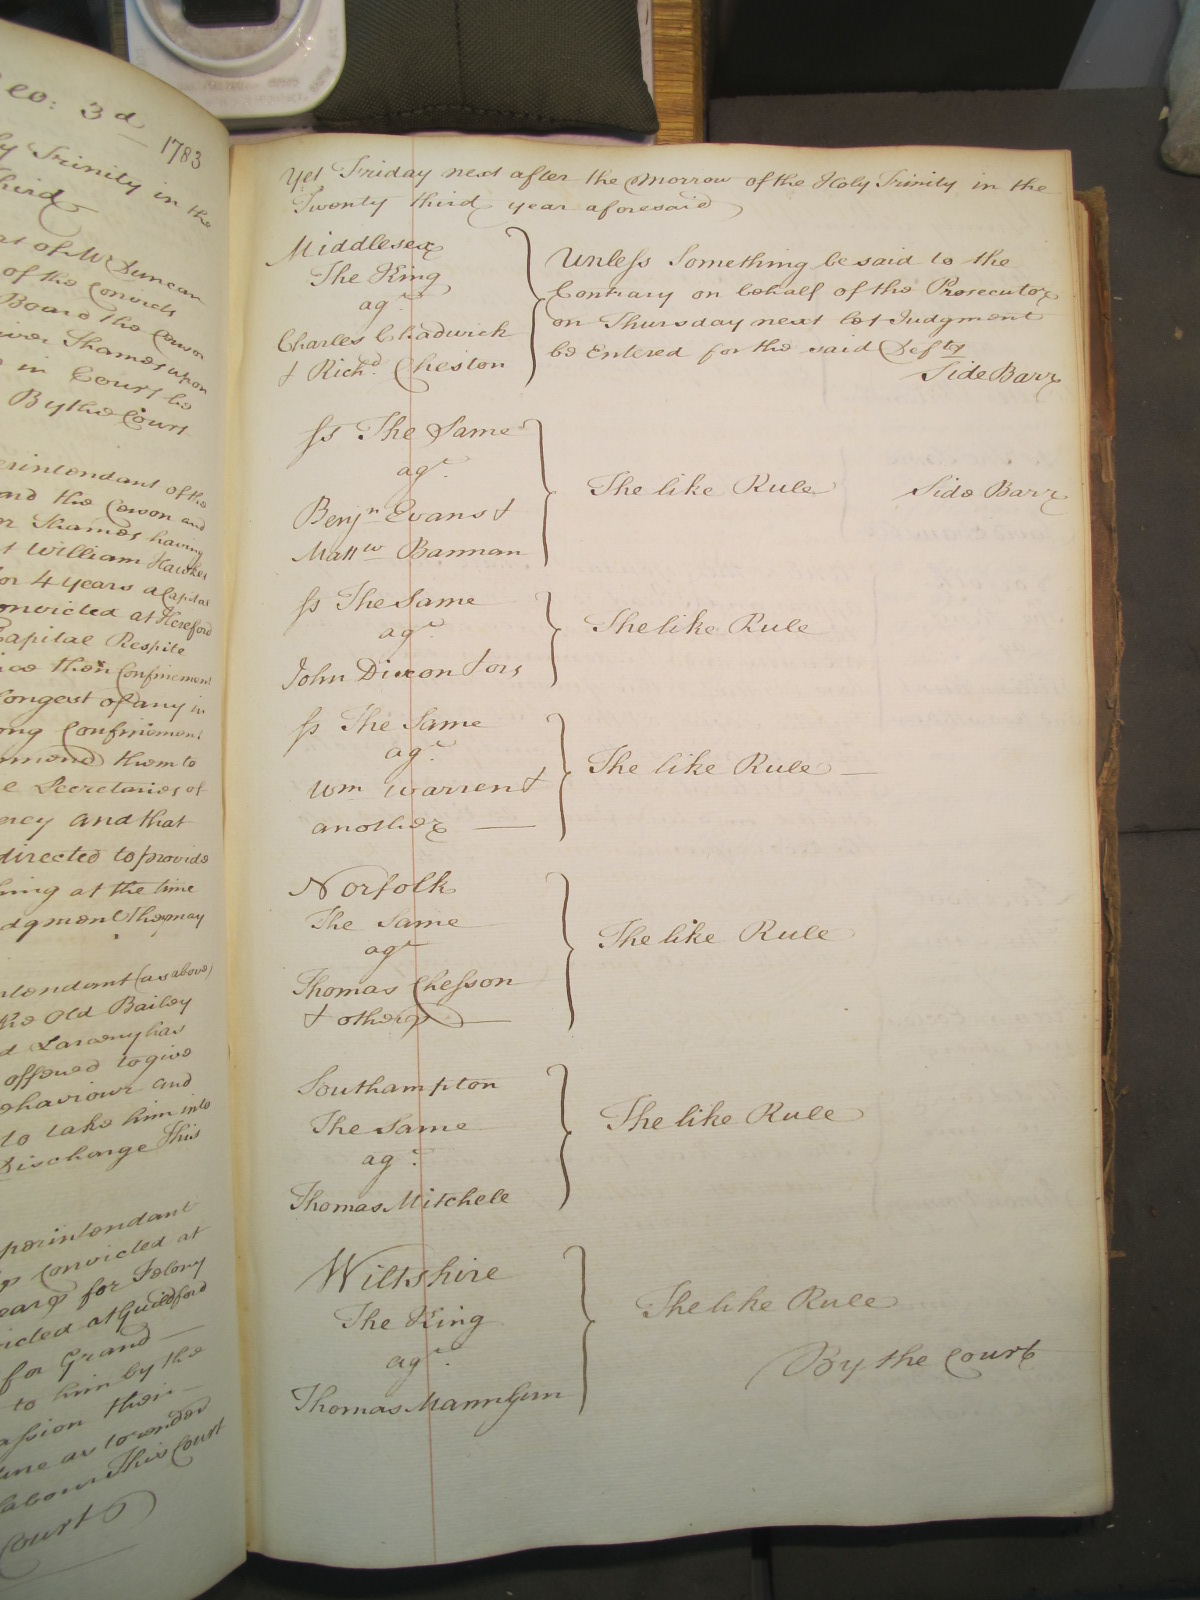 eo: 3d 1783
y Trinity in the
third
at of Mr Duncan
of the Convicts
Board the Censor
river Thames upon
in Court be
By the Court
erintendant of the
ard the Censor and
er Thames having
t William Hawkes
for 4 years a Capital
onvicted at Hereford
Capital Respite
ice their Confinement
longest of any in
ong Confinement
mmend them to
e Secretaries of
ency and that
directed to provide
hing at the time
dgment they may
intendant (as above)
the Old Bailey
d Larceny has
offered to give
ehaviour and
to take him into
Discharge This
perintendant
convicted at
ears for Felony
victed at Guildford
for Grand
to him by the
assion their
ime as to render
labour This Court
Court
Yet Friday next after the Morrow of the Holy Trinity in the
Twenty third year aforesaid
Middlesex
The King
agt
Charles Chadwick
& Richd Cheston
Unless Something be said to the
Contrary on behalf of the Prosecutor
on Thursday next let Judgment
be Entered for the said Defts
Side Barr
Ss The Same
agt
Benjn Evans &
Mattw Bannan
The like Rule Side Barr
Ss The Same
agt
John Dixon & ors
The like Rule
Ss The Same
agt
Wm Warren &
another
The like Rule
Norfolk
The Same
agt
Thomas Chesson
& others
The like Rule
Southampton
The Same
agt
Thomas Mitchele
The like Rule
Wiltshire
The King
agt
Thomas Manngum
The like Rule
By the Court